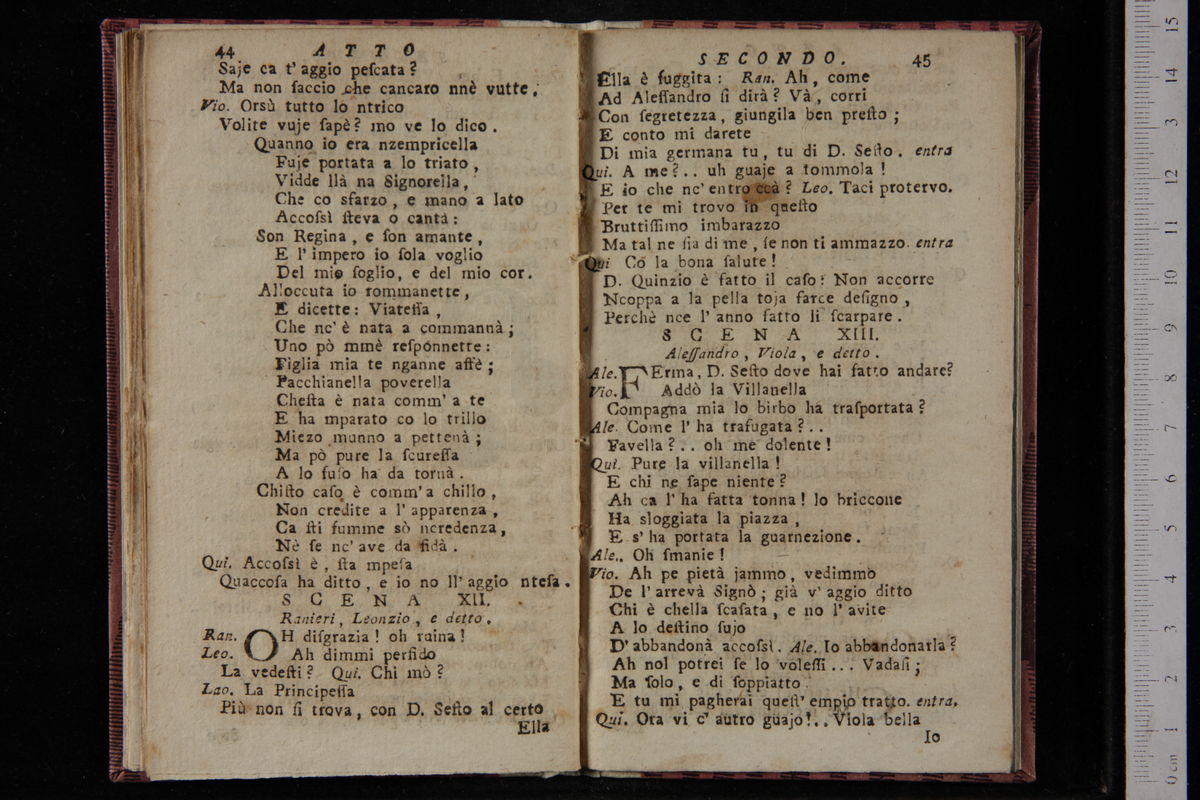 44 ATTO
Saje ca t' aggio peſcata?
Ma non faccio che cancaro nnè vutte.
Vio. Orsù tutto lo ntrico
Volite vuje ſapè? mo ve lo dico.
Quanno io era nzempricella
Fuje portata a lo triato,
Vidde llà na Signorella,
Che co sfarzo, e mano a lato
Accoſsì ſteva o cantà:
Son Regina, e ſon amante,
E l' impero io ſola voglio
Del mio ſoglio, e del mio cor.
Alloccuta io rommanette,
E dicette: Viateſſa,
Che nc' è nata a commannà;
Uno pò mmè reſponnette:
Figlia mia te nganne affè;
Pacchianella poverella
Cheſta è nata comm' a te
E ha mparato co lo trillo
Miezo munno a pettenà;
Ma pò pure la ſcureſſa
A lo fuſo ha da tornà.
Chiſto caſo è comm' a chillo,
Non credite a l' apparenza,
Ca ſti fumme sò ncredenza,
Nè ſe nc' ave da fidà.
Qui. Accoſsì è, ſta mpeſa
Quaccoſa ha ditto, e io no ll' aggio nteſa.
SCENA XII.
Ranieri, Leonzio, e detto.
Ran. OH diſgrazia! oh ruina!
Leo. Ah dimmi perfido
La vedeſti? Qui. Chi mò?
Leo. La Principeſſa
Più non ſi trova, con D. Seſto al certo
Ella
SECONDO. 45
Ella è fuggita: Ran. Ah, come
Ad Aleſſandro ſi dirà? Và, corri
Con ſegretezza, giungila ben preſto;
E conto mi darete
Di mia germana tu, tu di D. Seſto. entra
Qui. A me?.. uh guaje a tommola!
E io che nc' entro ccà? Leo. Taci protervo.
Per te mi trovo in queſto
Bruttiſſimo imbarazzo
Ma tal ne ſia di me, ſe non ti ammazzo. entra
Qui Co la bona ſalute!
D. Quinzio è fatto il caſo! Non accorre
Ncoppa a la pella toja farce deſigno,
Perchè nce l' anno fatto li ſcarpare.
SCENA XIII.
Aleſſandro, Viola, e detto.
Ale. FErma, D. Seſto dove hai fatto andare?
Vio. Addò la Villanella
Compagna mia lo birbo ha traſportata?
Ale. Come l' ha trafugata?..
Favella?.. oh me dolente!
Qui. Pure la villanella!
E chi ne ſape niente?
Ah ca l' ha fatta tonna! lo briccone
Ha sloggiata la piazza,
E s' ha portata la guarnezione.
Ale. Oh ſmanie!
Vio. Ah pe pietà jammo, vedimmo
De l' arrevà Signò; già v' aggio ditto
Chi è chella ſcaſata, e no l' avite
A lo deſtino ſujo
D' abbandonà accoſsì. Ale. Io abbandonarla?
Ah nol potrei ſe lo voleſſi... Vadaſi;
Ma ſolo, e di ſoppiatto
E tu mi pagherai queſt' empio tratto. entra.
Qui. Ora vi c' autro guajo!.. Viola bella
Io